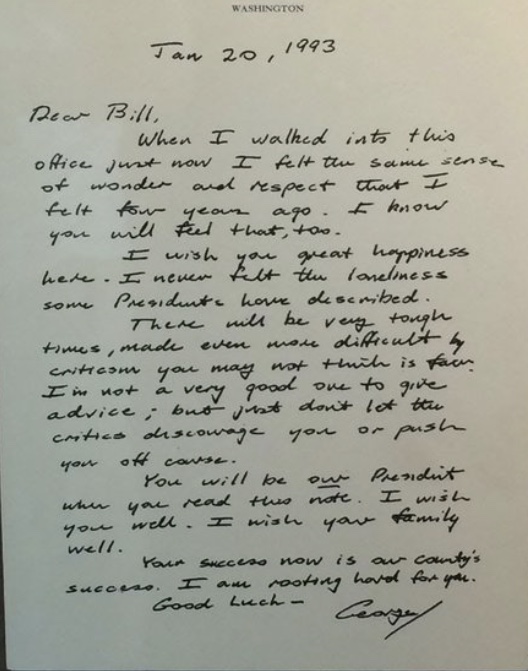 WASHINGTON
Jan 20, 1993
Dear Bill,
When I walked into this
office just now I felt the same sense
of wonder and respect that I
felt four years ago. I know
you will feel that, too.
I wish you great happiness
here. I never felt the loneliness
some Presidents have described.
There will be very tough
times, made even more difficult by
criticism you may not think is fair.
I'm not a very good one to give
advice; but just don't let the
critics discourage you or push
you off course.
You will be our President
when you read this note. I wish
you well. I wish your family
well.
Your success now is our country's
success. I am rooting hard for you.
Good Luck -
George